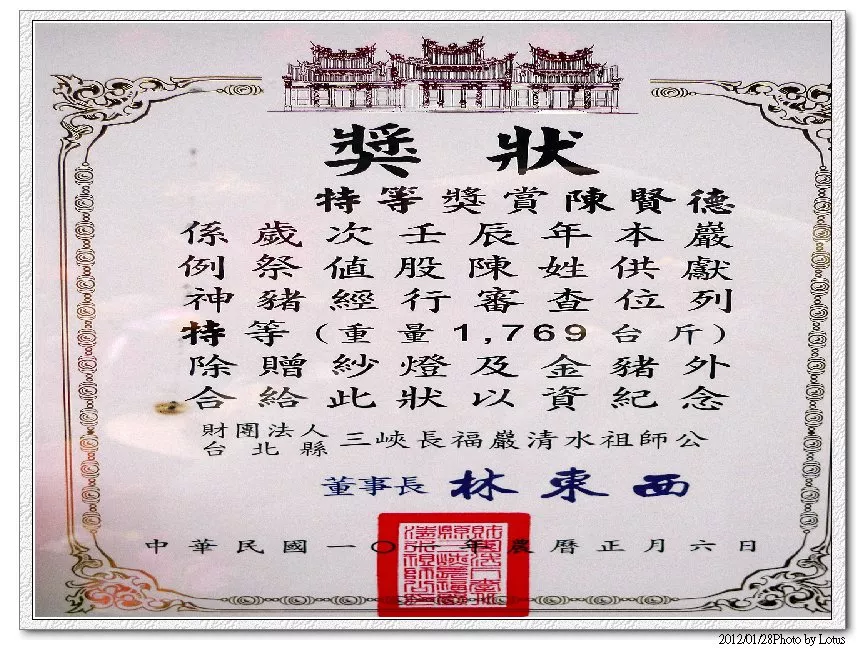 獎狀
特等獎賞陳賢德
係歲次壬辰年本巖
例祭值股陳姓供獻
神豬經行審查位列
特等(重量1,769台斤)
除贈紗燈及金豬外
合給此狀以資紀念
財團法人台北縣三峽長福巖清水祖師公
董事長 林東西
中華民國一〇一年農曆正月六日
2012/01/28Photo by Lotus